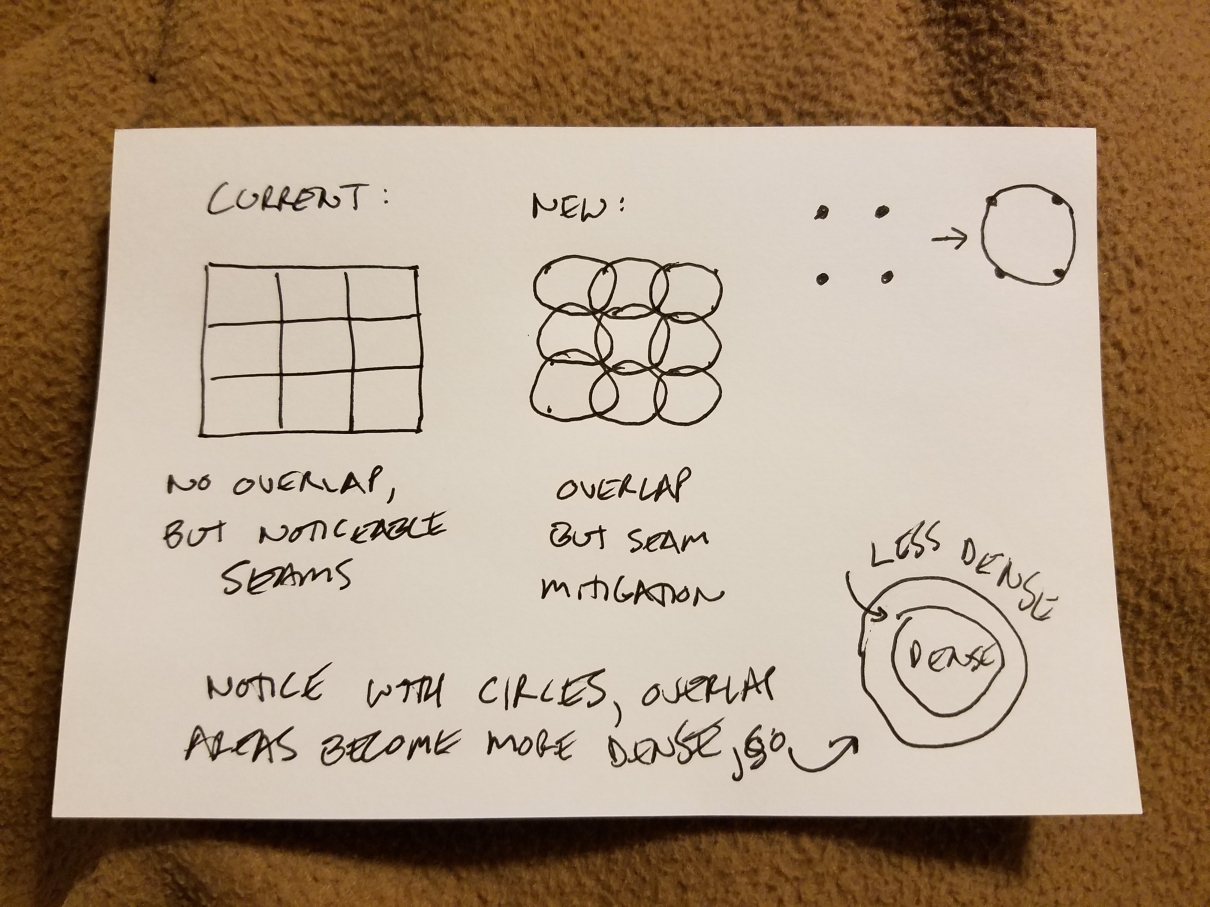 CURRENT:
NEW:
NO OVERLAP,
BUT NOTICEABLE
SEAMS
OVERLAP
BUT SEAM
MITIGATION
LESS DENSE
DENSE
NOTICE WITH CIRCLES, OVERLAP
AREAS BECOME MORE DENSE, SO